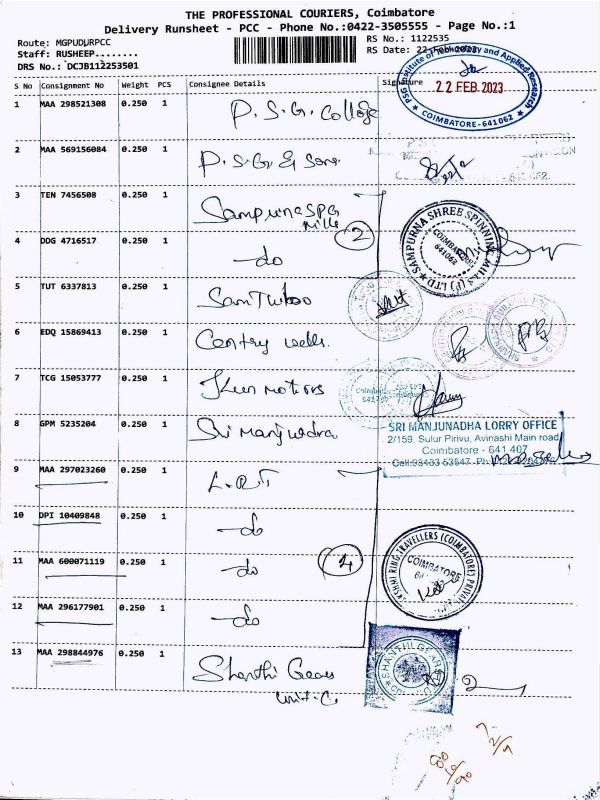 THE PROFESSIONAL COURIERS, Coimbatore
Delivery Runsheet - PCC - Phone No.:0422-3505555 - Page No.:1
Route: MGPUDURPCC
RS No.: 1122535
Staff: RUSHEEP........
RS Date: 22-Feb-2023
DRS No.: DCJB112253501
S No Consignment No Weight PCS Consignee Details Signature
PSG Institute of Technology and Applied Research
22 FEB 2023
COIMBATORE-641062
1 MAA 298521308 0.250 1 P.S.G. College
2 MAA 569156084 0.250 1 P.S.G & Sons
3 TEN 7456508 0.250 1 Sampurna SPG
Mills
2
SAMPURNA SHREE SPINNING MILLS (P) LTD
COIMBATORE
641062
4 DDG 4716517 0.250 1 do
5 TUT 6337813 0.250 1
6 EDQ 15869413 0.250 1 Century
7 TCG 15053777 0.250 1 Motors
8 GPM 5235204 0.250 1 Sri
SRI MANJUNADHA LORRY OFFICE
2/159, Sulur Pirivu, Avinashi Main road
Coimbatore - 641 407
9 MAA 297023260 0.250 1 L.R.T
10 DPI 10409848 0.250 1 do
11 MAA 600071119 0.250 1 do
4
RING TRAVELLERS (COIMBATORE) PRIVATE
COIMBATORE
12 MAA 296177901 0.250 1 do
13 MAA 298844976 0.250 1 Shanthi Gears
Unit-C
SHANTHI GEARS